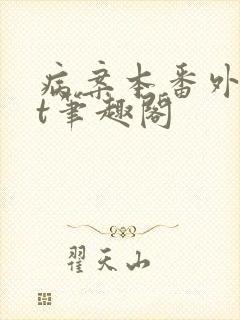 病案本番外
t笔趣阁
翟天山